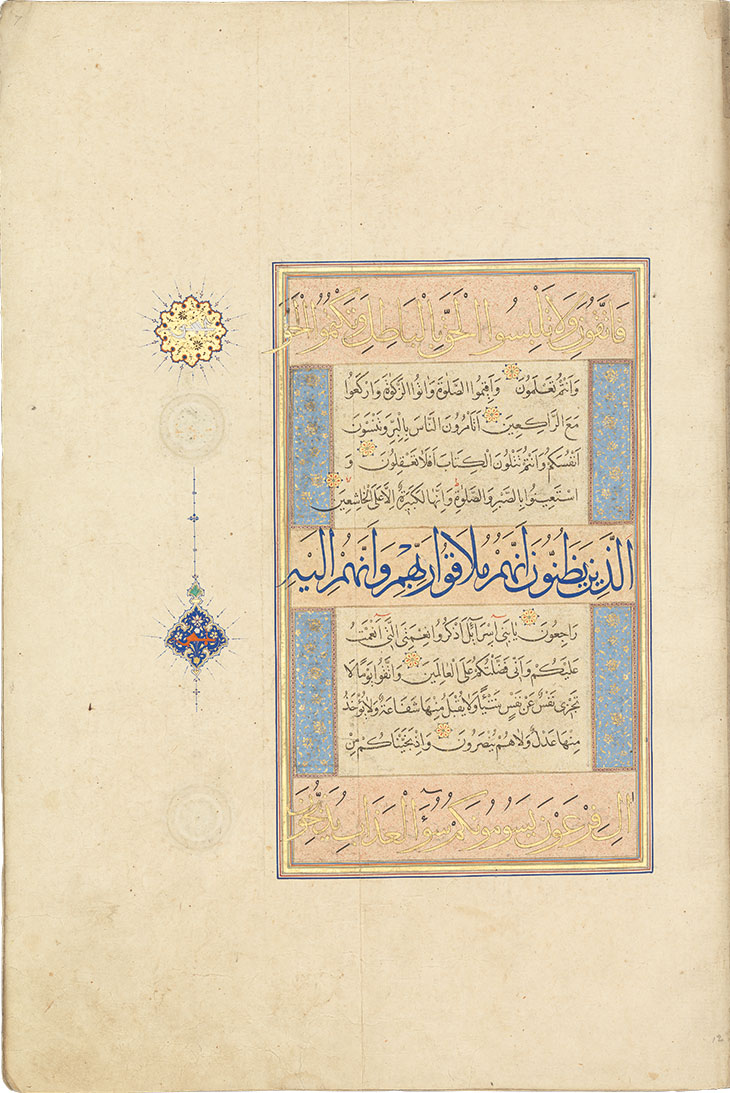 فَاتَّقُونِ وَلَا تَلْبِسُوا الْحَقَّ بِالْبَاطِلِ وَتَكْتُمُوا الْحَقَّ
وَاَنْتُمْ تَعْلَمُونَ وَاَقِيمُوا الصَّلٰوةَ وَاٰتُوا الزَّكٰوةَ وَارْكَعُوا
مَعَ الرَّاكِعِينَ اَتَأْمُرُونَ النَّاسَ بِالْبِرِّ وَتَنْسَوْنَ
اَنْفُسَكُمْ وَاَنْتُمْ تَتْلُونَ الْكِتَابَ اَفَلَا تَعْقِلُونَ وَ
اسْتَعِينُوا بِالصَّبْرِ وَالصَّلٰوةِ وَاِنَّهَا لَكَبِيرَةٌ اِلَّا عَلَى الْخَاشِعِينَ
الَّذِينَ يَظُنُّونَ اَنَّهُمْ مُلَاقُوا رَبِّهِمْ وَاَنَّهُمْ اِلَيْهِ
رَاجِعُونَ يَا بَنِي اِسْرَآئِلَ اذْكُرُوا نِعْمَتِيَ الَّتِي اَنْعَمْتُ
عَلَيْكُمْ وَاَنِّي فَضَّلْتُكُمْ عَلَى الْعَالَمِينَ وَاتَّقُوا يَوْمًا لَا
تَجْزِي نَفْسٌ عَنْ نَفْسٍ شَيْئًا وَلَا يُقْبَلُ مِنْهَا شَفَاعَةٌ وَلَا يُؤْخَذُ
مِنْهَا عَدْلٌ وَلَا هُمْ يُنْصَرُونَ وَاِذْ نَجَّيْنَاكُمْ مِنْ
اٰلِ فِرْعَوْنَ يَسُومُونَكُمْ سُوٓءَ الْعَذَابِ يُذَبِّحُونَ